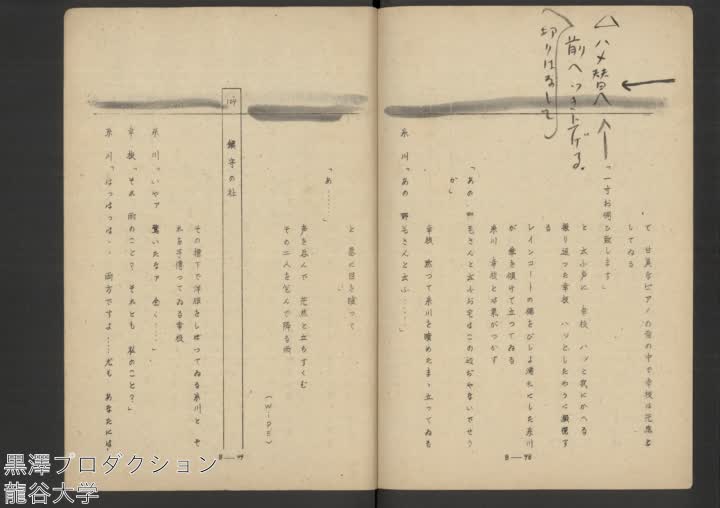 ハメ替へ
前へつき上げる
切りはなして
て 甘美なピアノの音の中で幸枝は茫然と
してゐる
「一寸お伺ひ致します」
と 太い声に 幸枝 ハッと我にかへる
振り返つた幸枝 ハッとしたわうに凝視す
る
レインコートの
が 傘を傾けて立つてゐる
糸川 幸枝とは気がつかず
糸川「あの 野毛さんと云ふ……」
幸枝 黙つて糸川を瞶めたまゝ立つてゐる
「あの 野毛さんと云ふお宅はこの辺ぢやないでせう
かし
B—48
と 急に目を瞠つて
「あ……」
声を忍んで 茫然と立ちすくむ
その二人を包んで降る雨
(WIPE)
104
鎮守の社
その檐下で洋服をしぼつてゐる糸川と そ
れを手傳つてゐる幸枝
糸川「いやァ 驚いたなァ 全く……」
幸枝「それ 雨のこと? それとも 私のこと?」
糸川「はつはつは、 両方ですよ……尤も あなたには、
B—49
黒澤プロダクション
龍谷大学